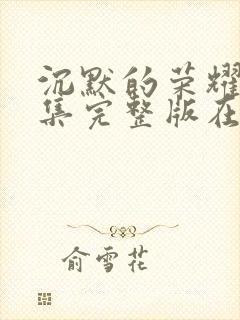 沉默的荣耀
集完整版在
俞雪花